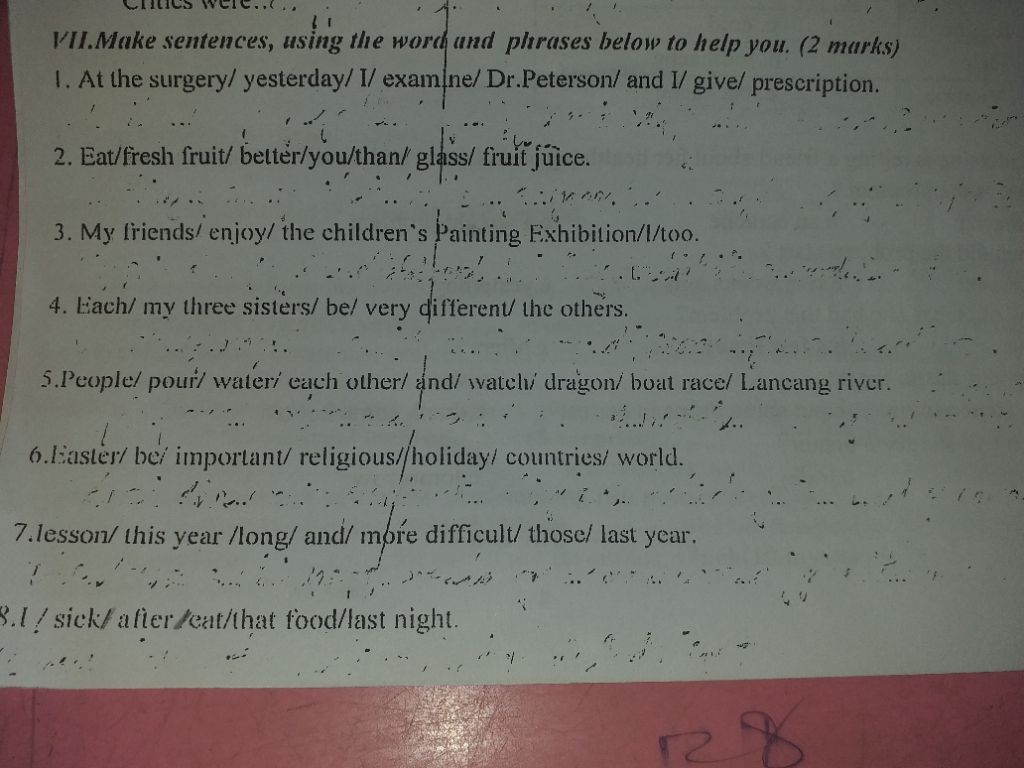 Critics were...
VII.Make sentences, using the word and phrases below to help you. (2 marks)
1. At the surgery/ yesterday/ I/ examine/ Dr.Peterson/ and I/ give/ prescription.
2. Eat/fresh fruit/ better/you/than/ glass/ fruit juice.
3. My friends/ enjoy/ the children's Painting Exhibition/I/too.
4. Each/ my three sisters/ be/ very different/ the others.
5.People/ pour/ water/ each other/ and/ watch/ dragon/ boat race/ Lancang river.
6.Easter/ be/ important/ religious/ holiday/ countries/ world.
7.lesson/ this year /long/ and/ more difficult/ those/ last year.
8.I / sick/ after/eat/that food/last night.